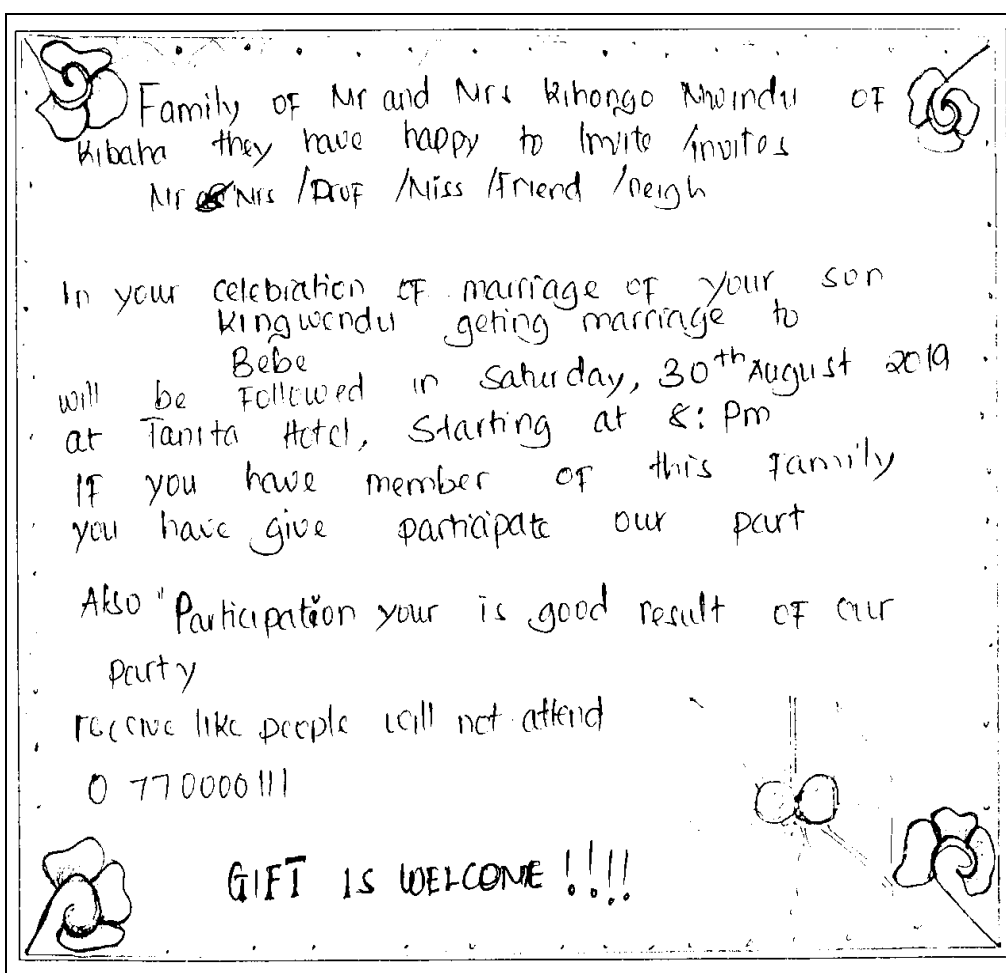 Family of Mr and Mrs Kihongo Mwindu of
Kibaha they have happy to Invite /invites
Mr Mrs /Prof /Miss /Friend /neigh
In your celebration of marriage of your son
Kingwendu geting marriage to
Bebe
will be Followed in Saturday, 30th August 2019
at Tanita Hotel, Starting at 8: Pm
If you have member of this Family
you have give participate our part
Also "Participation your is good result of our
party
receive like people will not attend
0 770000111
GIFT IS WELCOME !!!!